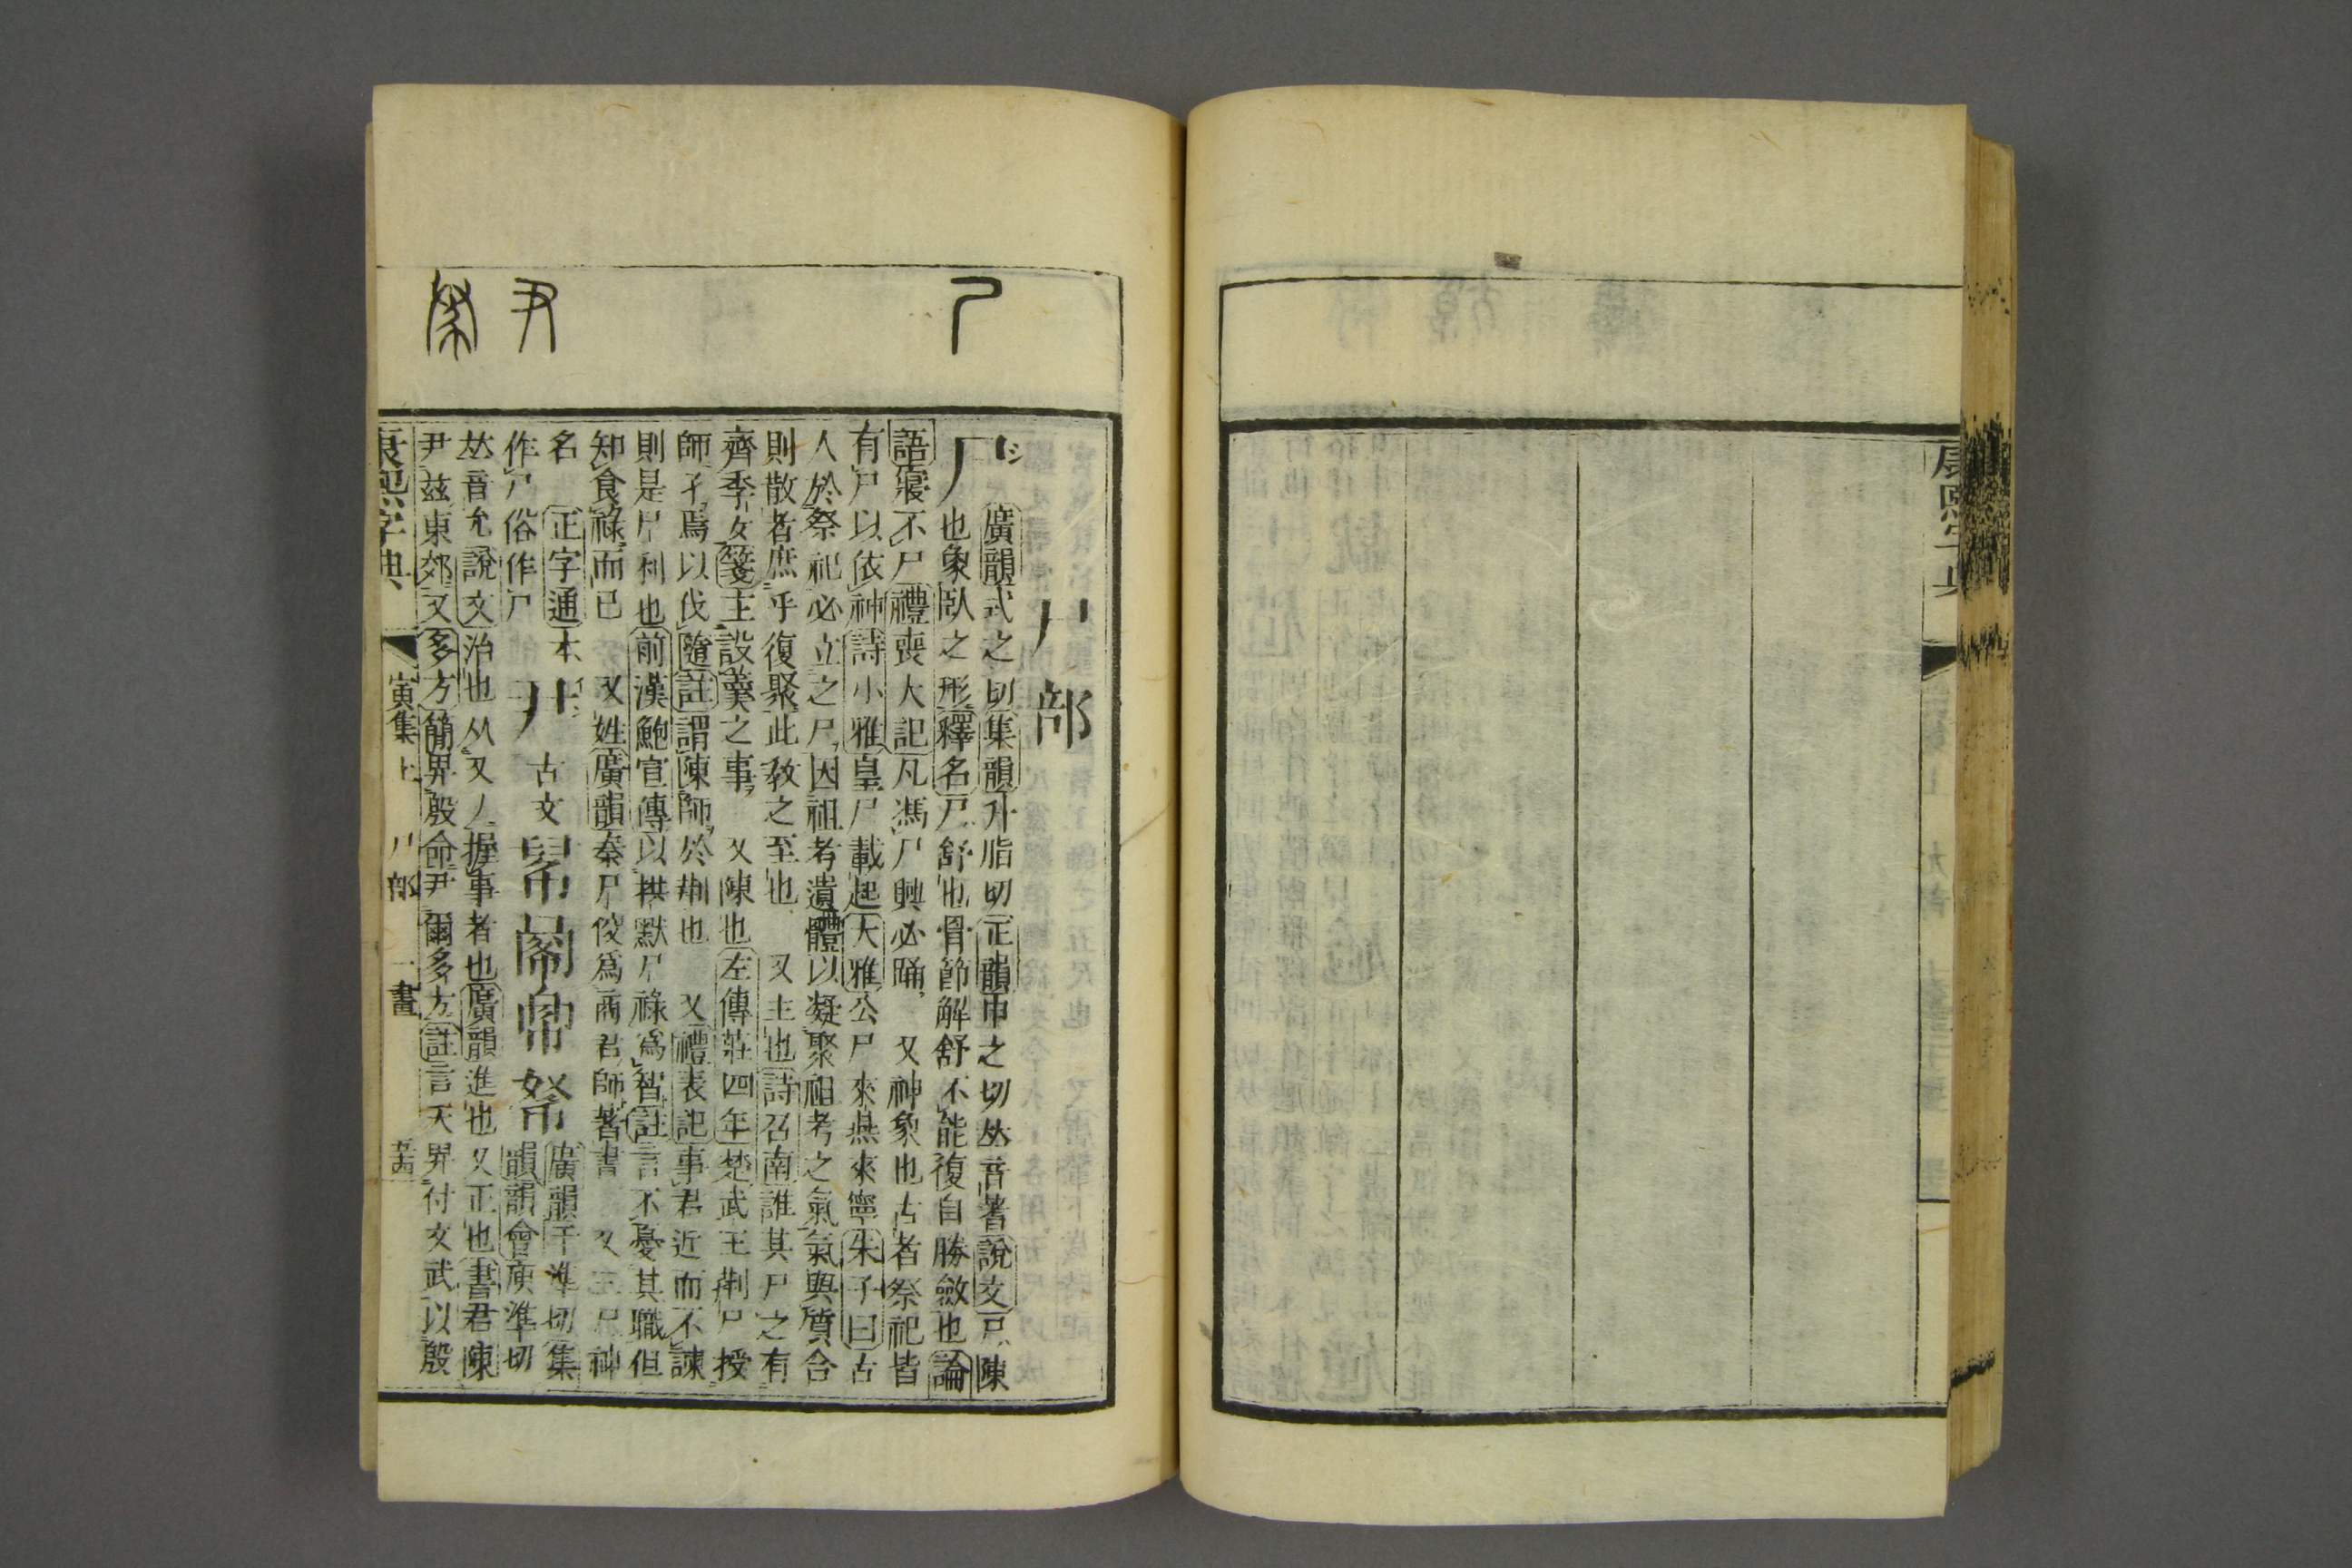 康熙字典
尸部
尸
シ
廣韻式之切集韻升脂切正韻申之切𠀤音蓍說文尸陳
也象臥之形釋名尸舒也骨節解舒不能復自勝斂也論
語寢不尸禮喪大記凡馮尸興必踊 又神象也古者祭祀皆
有尸以依神詩小雅皇尸載起大雅公尸來燕來寧朱子曰古
人於祭祀必立之尸因祖考遺體以凝聚祖考之氣氣與質合
則散者庶乎復聚此敎之至也 又主也詩召南誰其尸之有
齊季女箋主設羹之事 又陳也左傳莊四年楚武王荆尸授
師孑焉以伐隨註謂陳師於荆也 又禮表記事君近而不諫
則是尸利也前漢鮑宣傳以拱默尸祿爲智註言不憂其職但
知食祿而已 又姓廣韻秦尸佼爲商君師著書 又三尸神
名 正字通本
作尸俗作尸
尹
古文
𢁙
廣韻于準切集
韻韻會庾準切
𠀤音允說文治也从又丿握事者也廣韻進也 又正也書君陳
尹兹東郊又多方簡畀殷命尹爾多方註言天畀付文武以殷
康熙字典
寅集上 尸部 一畫